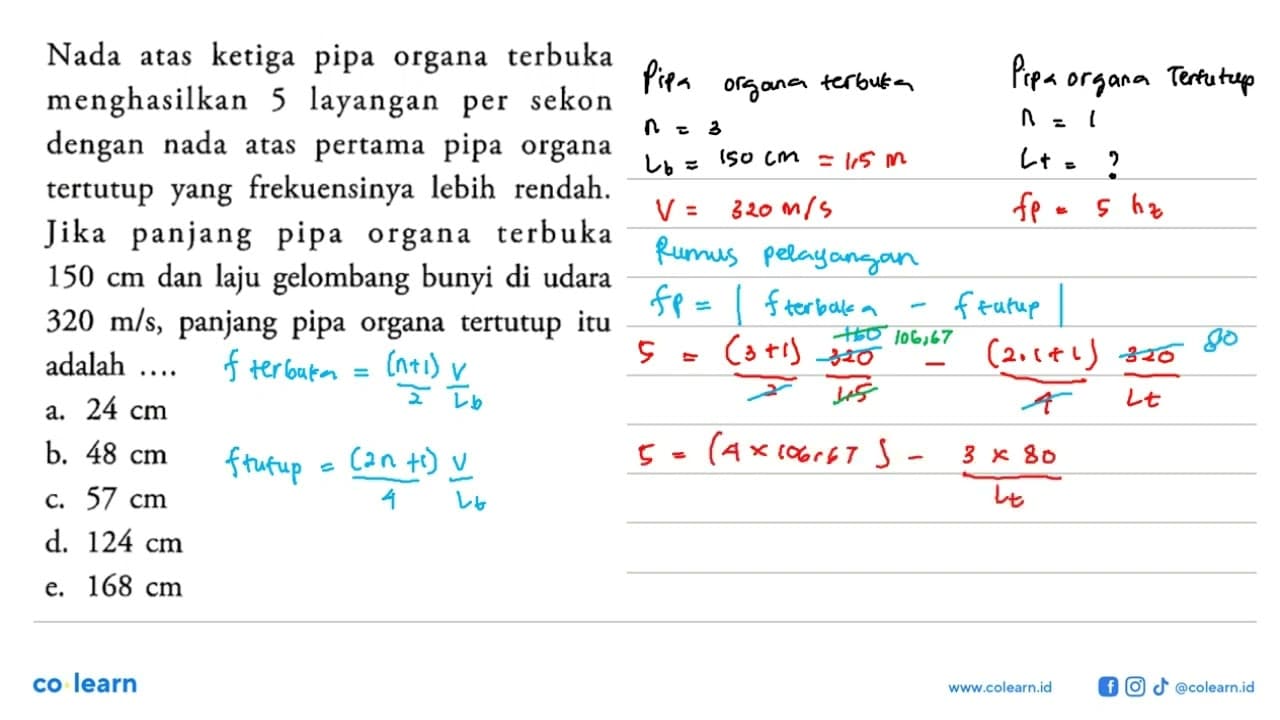 Nada atas ketiga pipa organa terbuka
menghasilkan 5 layangan per sekon
dengan nada atas pertama pipa organa
tertutup yang frekuensinya lebih rendah.
Jika panjang pipa organa terbuka
150 cm dan laju gelombang bunyi di udara
320 m/s, panjang pipa organa tertutup itu
adalah ....
a. 24 cm
b. 48 cm
c. 57 cm
d. 124 cm
e. 168 cm
f terbuka = (n+1)/2 V/Lb
f tutup = (2n+1)/4 V/Lb
Pipa organa terbuka
n = 3
Lb = 150 cm = 1,5 m
V = 320 m/s
Pipa organa Tertutup
n = 1
Lt = ?
fp = 5 hz
Rumus pelayangan
fp = | f terbuka - f tutup |
160 106,67 80
5 = (3+1)/2 320/1,5 - (2.1+1)/4 320/Lt
5 = (4 x 106,67) - 3 x 80/Lt
co learn
www.colearn.id
@colearn.id